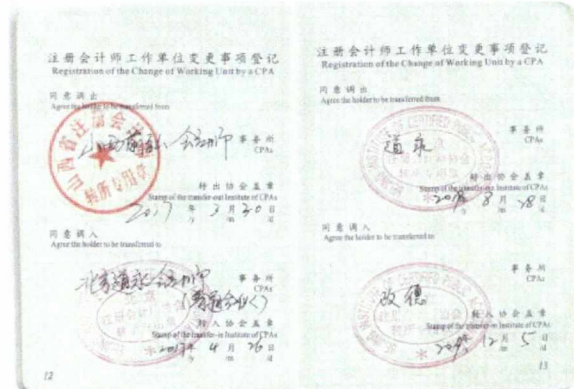 注册会计师工作单位变更事项登记
Registration of the Change of Working Unit by a CPA
同意调出
Agree the holder to be transferred from
事务所
CPAs
转出协会盖章
Stamp of the transfer-out Institute of CPAs
2017年3月30日
y m d
同意调入
Agree the holder to be transferred to
北京道永会计师
事务所
CPAs
转入协会盖章
Stamp of the transfer-in Institute of CPAs
2017年4月26日
y m d
12
注册会计师工作单位变更事项登记
Registration of the Change of Working Unit by a CPA
同意调出
Agree the holder to be transferred from
道永
事务所
CPAs
转出协会盖章
Stamp of the transfer-out Institute of CPAs
8月28日
同意调入
Agree the holder to be transferred to
事务所
CPAs
转入协会盖章
Stamp of the transfer-in Institute of CPAs
12月5日
13